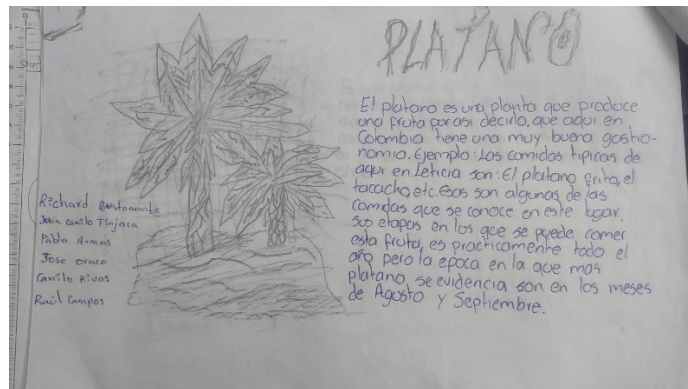 PLATANO
El platano es una planta que produce
una fruta por asi decirlo, que aqui en
Colombia tiene una muy buena gastro-
nomia. Ejemplo: Las comidas tipicas de
aqui en Leticia son: El platano frito, el
tacacho, etc. Esos son algunas de las
comidas que se conoce en este lugar.
Sus etapas en los que se puede comer
esta fruta, es practicamente todo el
año pero la epoca en la que mas
platano, se evidencia son en los meses
de Agosto y Septiembre.
Richard Bustamante
Camilo Tinjaca
Pablo Armas
Jose
Camilo Rivas
Raúl Campos